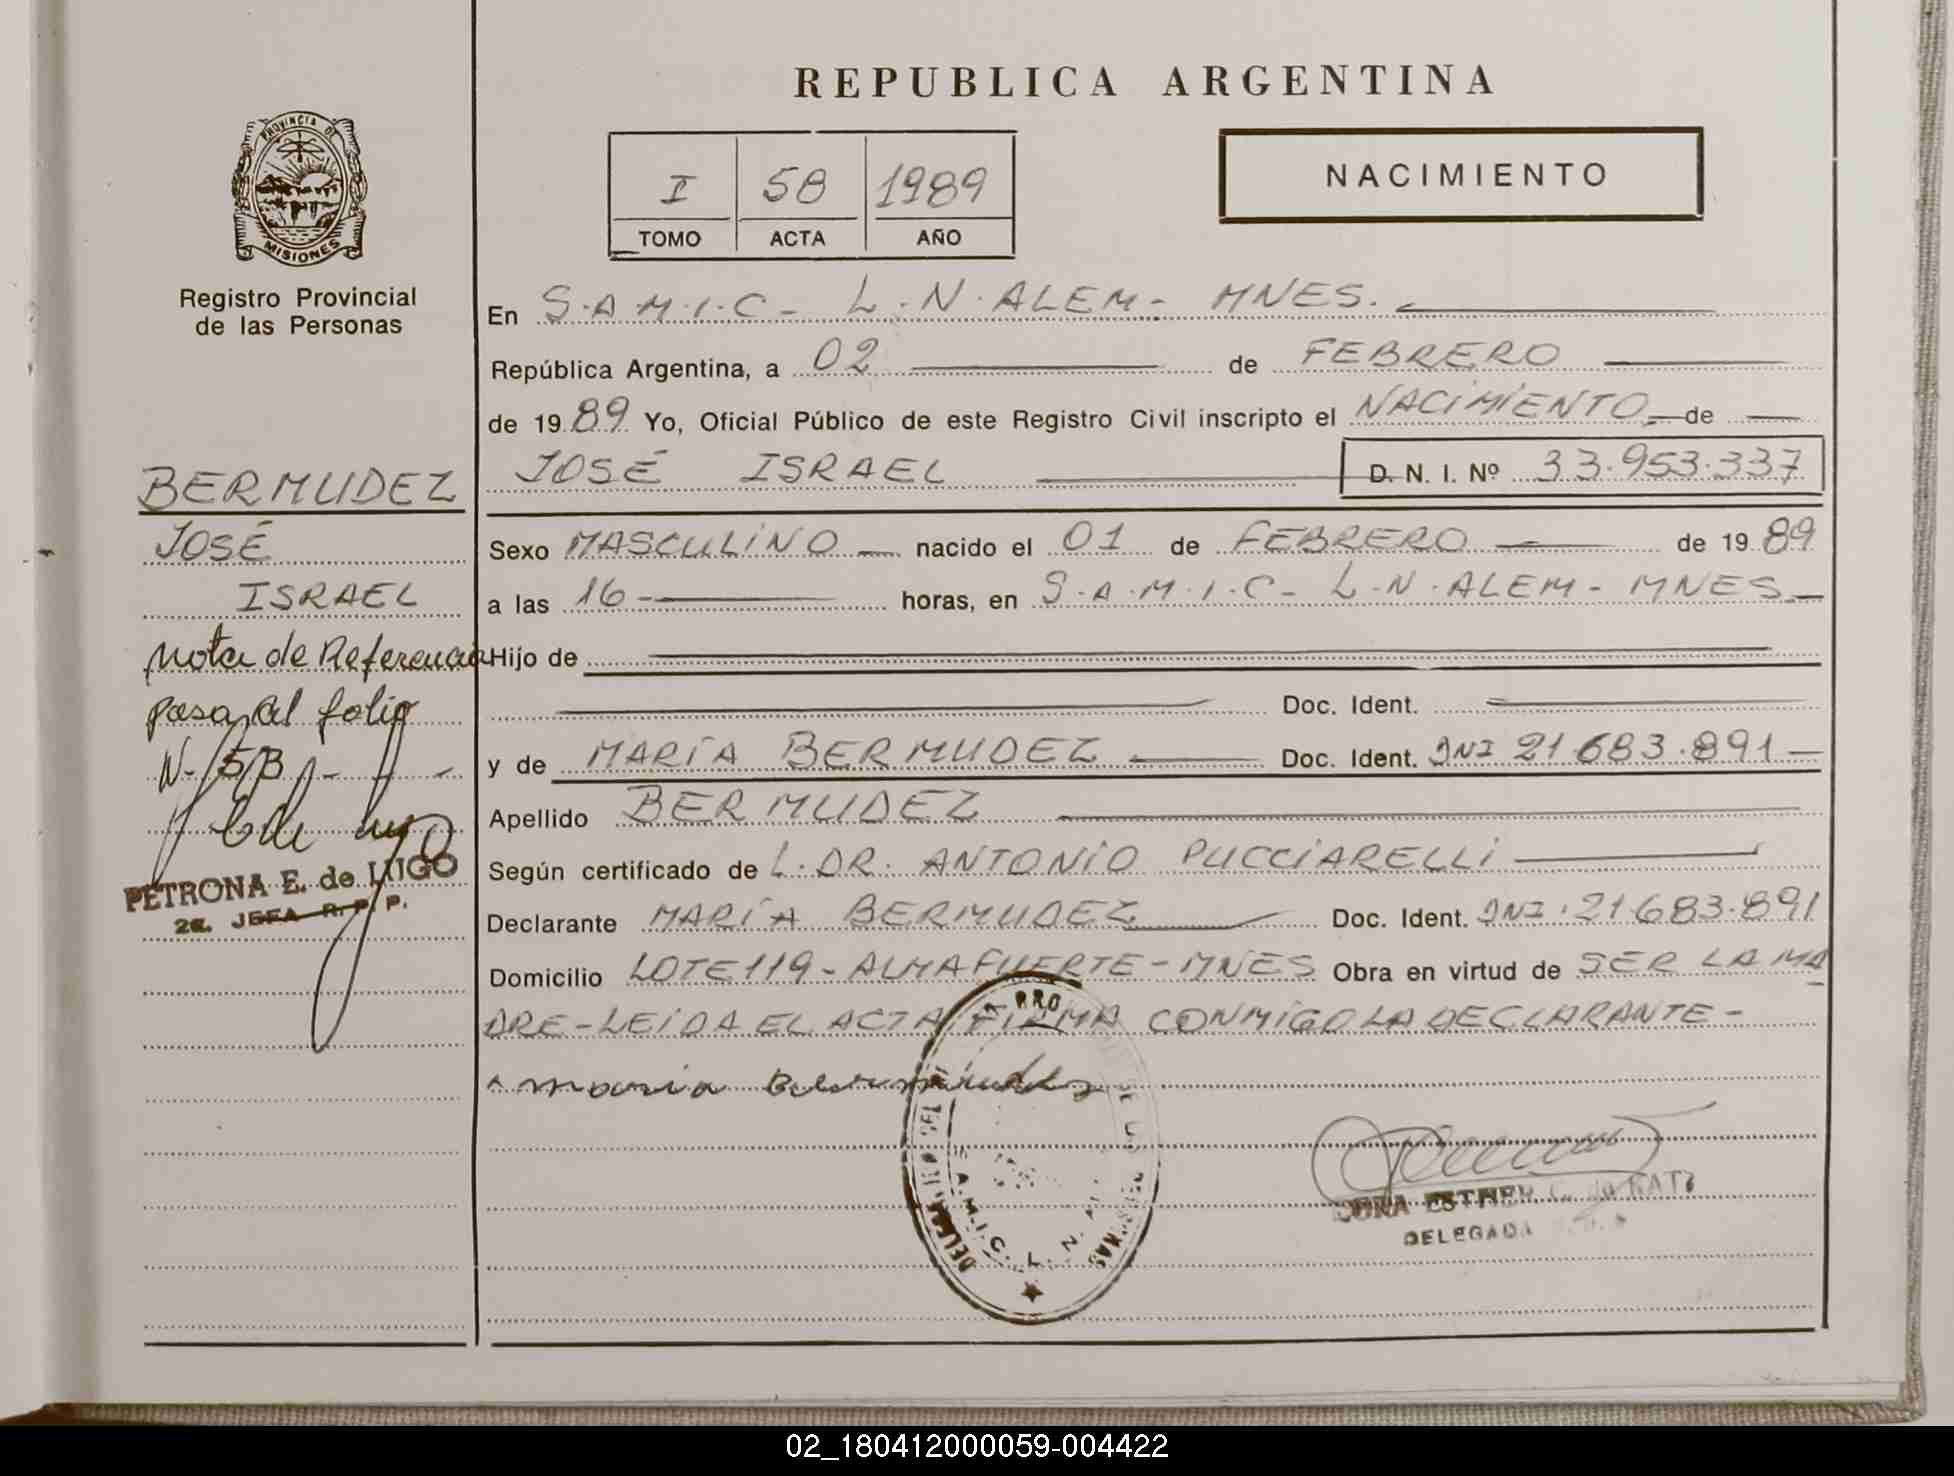 REPUBLICA ARGENTINA
PROVINCIA DE
MISIONES
Registro Provincial
de las Personas
I 58 1989
TOMO ACTA AÑO
NACIMIENTO
En S.A.M.I.C - L.N.ALEM - MNES.
República Argentina, a 02 de FEBRERO
de 1989 Yo, Oficial Público de este Registro Civil inscripto el NACIMIENTO de
JOSÉ ISRAEL D. N. I. Nº 33.953.337
Sexo MASCULINO nacido el 01 de FEBRERO de 1989
a las 16 - horas, en S.A.M.I.C - L.N.ALEM - MNES
Hijo de
Doc. Ident.
y de MARÍA BERMUDEZ Doc. Ident. DNI 21.683.891
Apellido BERMUDEZ
Según certificado de L.DR. ANTONIO PUCCIARELLI
Declarante MARÍA BERMUDEZ Doc. Ident. DNI.21683.891
Domicilio LOTE 119 - ALMAFUERTE - MNES Obra en virtud de SER LA MA
DRE - LEÍDA EL ACTA FIRMA CONMIGO LA DECLARANTE -
maria Bermudez
BERMUDEZ
JOSÉ
ISRAEL
Nota de Referencia
pasa al folio
N- 5B
PETRONA E. de LUGO
2a. JEFA R. P. P.
S.A.M.I.C. L. N.
ESTHER
DELEGADA
02_180412000059-004422